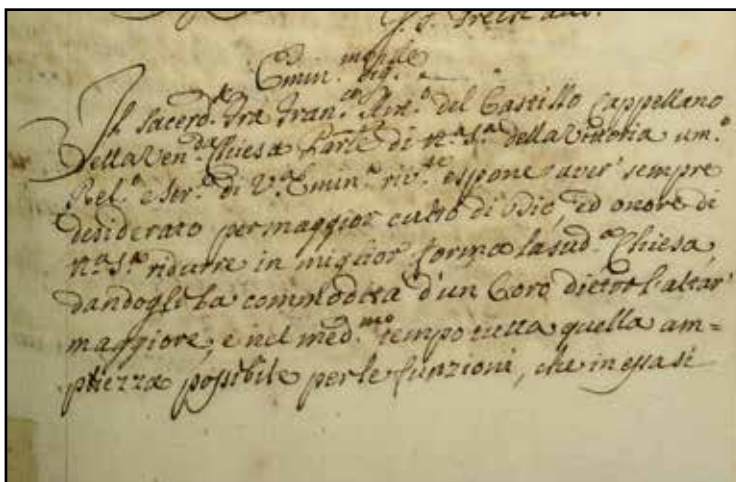 Emin.^mo Sig.^re
Il Sacerd.^te Fra Fran.^co Ant.^o del Castillo Cappellano
della Ven.^da Chiesa Parr.^le di N.^a S.^ra della Vittoria um.^o
Rel.^o e Ser.^e di V.^a Emin.^a riv.^te espone aver' sempre
desiderato per maggior culto di Dio, ed onore di
N.^a S.^ra ridurre in miglior forma la sud.^a Chiesa,
dandogli la commodità d'un Coro dietro l'altar
maggiore, e nel med.^mo tempo tutta quella am=
piezza possibile per le funzioni, che in essa si